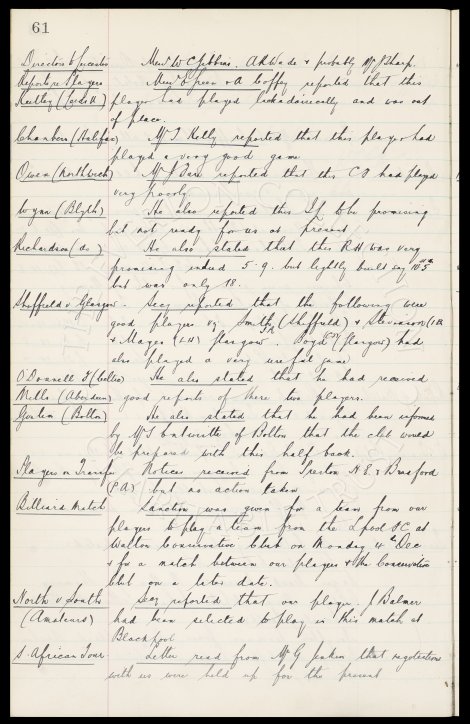 61
Directors to Leicester Messrs W C Gibbins. A R Wade & probably W J Sharp.
Reports re Players Messrs D Green & A Coffey reported that this
Keelley (Cardiff) player had played lackadaisically and was out
of place.
Chambers (Halifax) Mr T. Kelly reported that this player had
played a very good game
Owen (Northwich) Mr J Tare reported that this CF had played
very poorly.
Wynn (Blyth) He also reported this IL to be promising
but not ready for us at present
Richardson (do) He also stated that this RH was very
promising indeed 5-9. but lightly built say
but was only 18.
Sheffield v Glasgow. Secy reported that the following were
good players vz Smith (Sheffield) & Stevenson
& Mages (LH) Glasgow. (Glasgow) had
also played a very useful game
O'Donnell F (Celtic) He also stated that he had received
Mills (Aberdeen) good reports of these two players.
Goslin (Bolton) He also stated that he had been informed
by Mr S Entwistle of Bolton that the club would
be prepared with this half back.
Players on Transfer Notices received from Preston N.E. & Bradford
(P.A.) but no action taken
Billiard Match Sanction was given for a team from our
players to play a team from the Lpool FC at
Walton Conservative Club on Monday 4th Dec
& for a match between our players & the Conservative
Club on a later date.
North v South Secy reported that our player J Balmer
(Amateurs) had been selected to play in this match at
Blackpool
S. African Tour. Letter read from Mr G that negotiations
with us were held up for the present